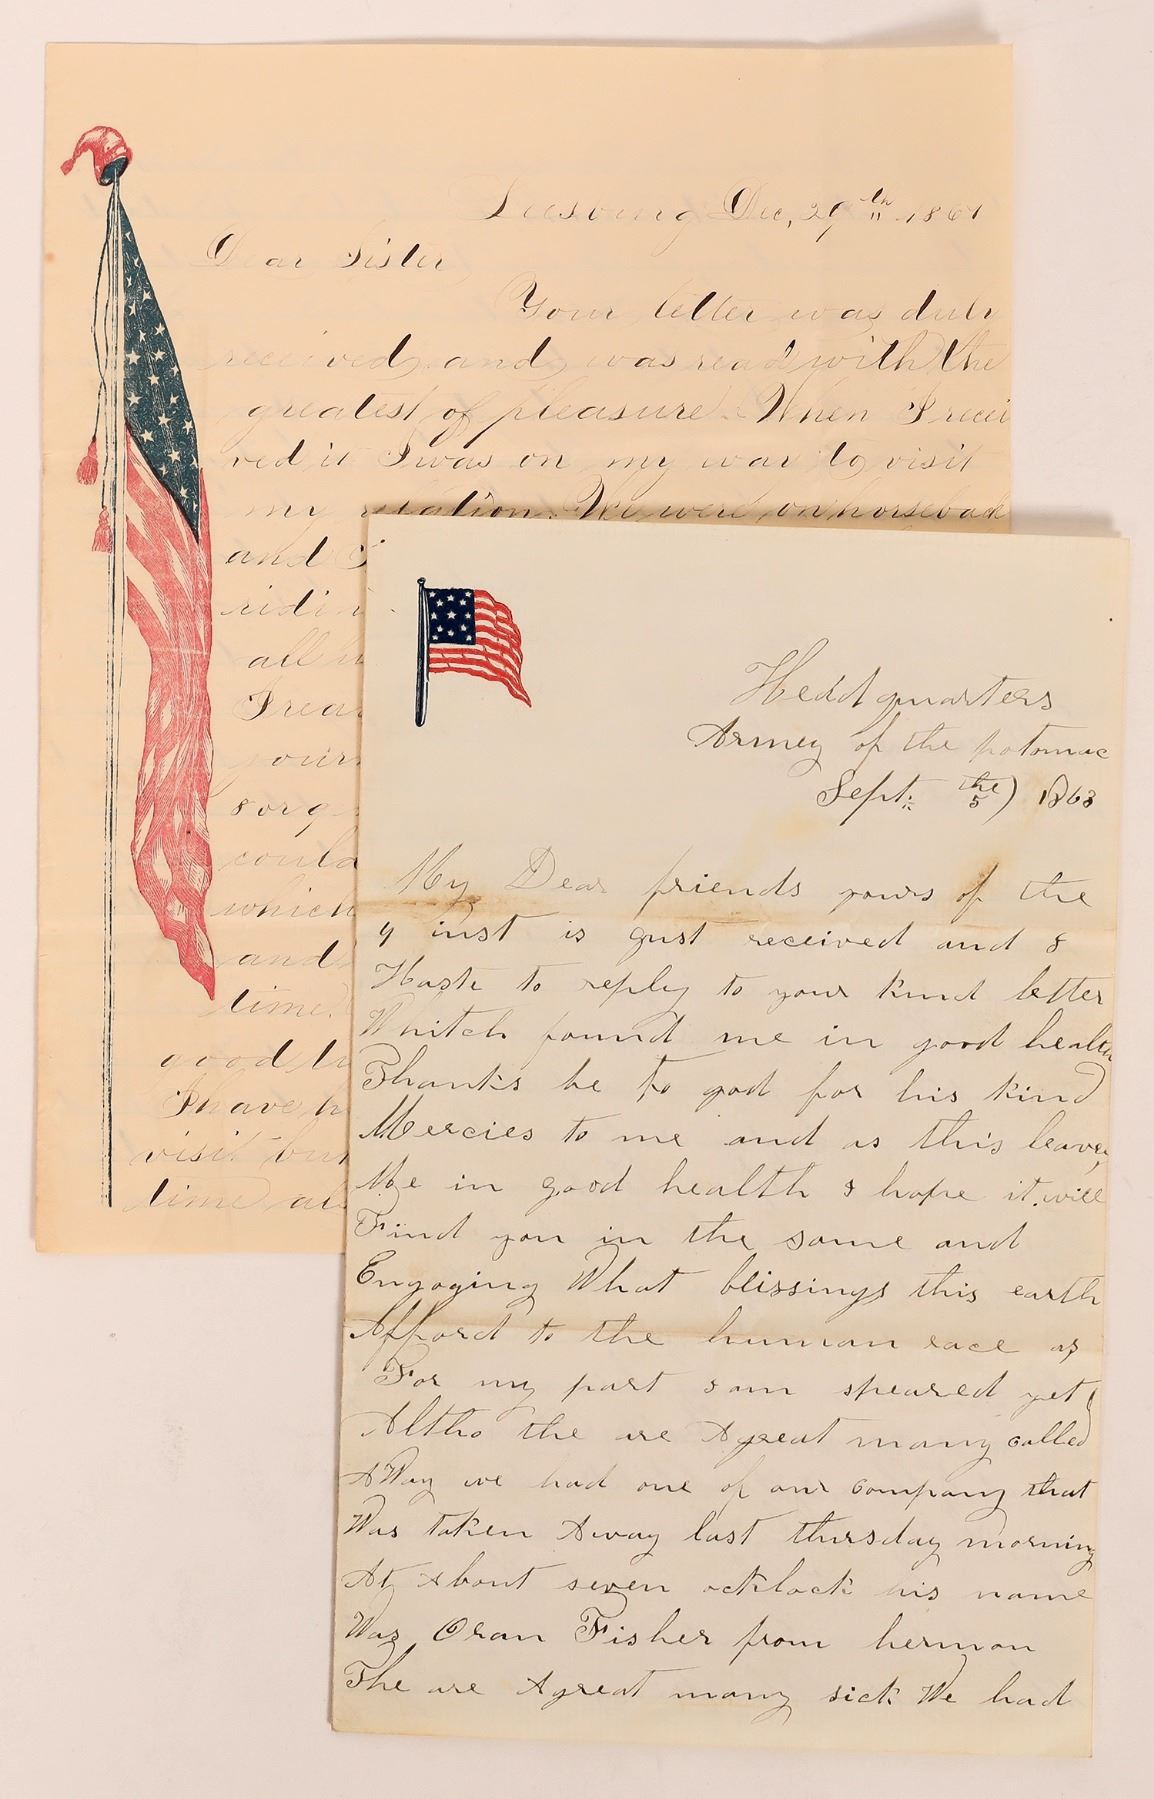 Dec, 29th 1861
Dear Sister
Your letter was duly
received and was read with the
greatest of pleasure. When I recei
ved it I was on my way to visit
my relation. We were on horseback
and I
ridi
all
I rea
your
sorg
could
which
and
time.
good
I have h
visit but
time an
Heddquarters
Armey of the potomac
Sept. the 5) 1863
My Dear friends yours of the
inst is gust received and &
Haste to repley to your kind letter
Whitch found me in good health
Thanks be to god for his kind
Mercies to me and as this leaves
Me in good health & hope it will
Find you in the same and
Engoying What blissings this earth
Afford to the human race as
For my part & am speared yet
Altho the are A great many called
A Way we had one of our company that
Was taken Away last thursday morning
At About seven ocklock his name
Was Oran Fisher from hermon
The are A great many sick We had